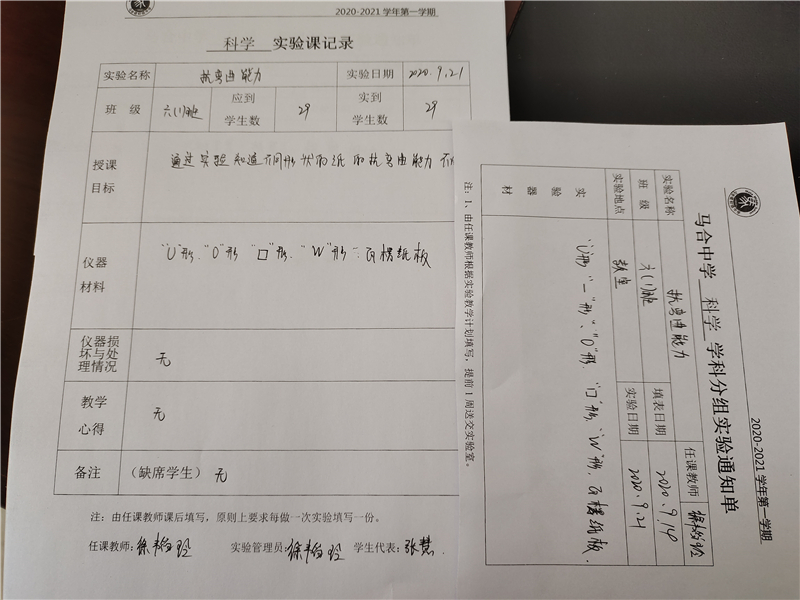 2020-2021 学年第一学期
科学 实验课记录
实验名称 抗弯曲能力 实验日期 2020.9.21
班 级 六(1)班 应到学生数 29 实到学生数 29
授课目标 通过实验知道不同形状的纸的抗弯曲能力不
仪器材料 "U"形、"O"形 "口"形、"W"形、瓦楞纸板
仪器损坏与处理情况 无
教学心得 无
备注 (缺席学生) 无
注:由任课教师课后填写,原则上要求每做一次实验填写一份。
任课教师: 实验管理员: 学生代表:张慧
2020-2021 学年第一学期
马合中学 科学 学科分组实验通知单
任课教师
实验名称 抗弯曲能力 填表日期 2020.9.14
班 级 六(1)班 实验日期 2020.9.21
实验地点 教室
实验器材 "U"形 "一"形、"O"形、"门"形、"W"形、瓦楞纸板.
注:1、由任课教师根据实验教学计划填写,提前 1 周送交实验室。